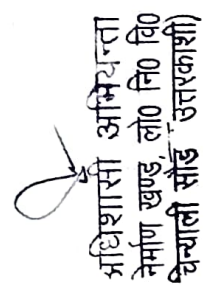 अधिशासी अभियन्ता
निर्माण खण्ड, लो० नि० वि०
चिन्याली सौड़ उत्तरकाशी)